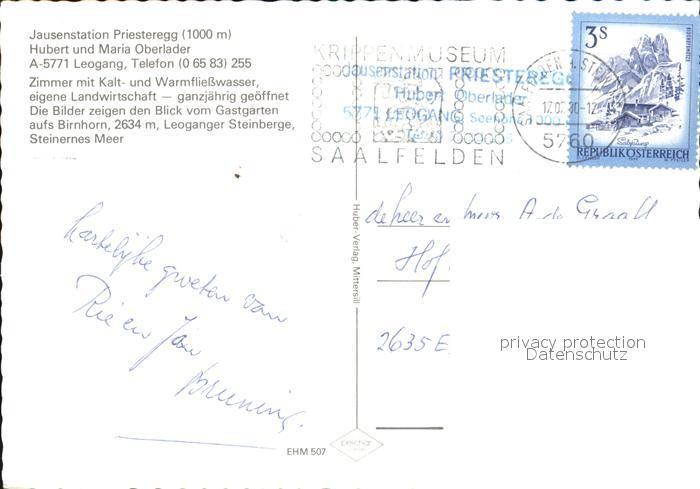 Jausenstation Priesteregg (1000 m)
Hubert und Maria Oberlader
A-5771 Leogang, Telefon (0 65 83) 255
Zimmer mit Kalt- und Warmfließwasser,
eigene Landwirtschaft — ganzjährig geöffnet
Die Bilder zeigen den Blick vom Gastgarten
aufs Birnhorn, 2634 m, Leoganger Steinberge,
Steinernes Meer
KRIPPENMUSEUM
SAALFELDEN
Jausenstation PRIESTEREGG
Hubert Oberlader
5771 LEOGANG
5760
3S
REPUBLIK ÖSTERREICH
Hartelijke groeten van
Rie en Jan
Bruning.
de heer en mevr A. de Graaff
Hof
2635 E
privacy protection
Datenschutz
Huber-Verlag, Mittersill
EHM 507